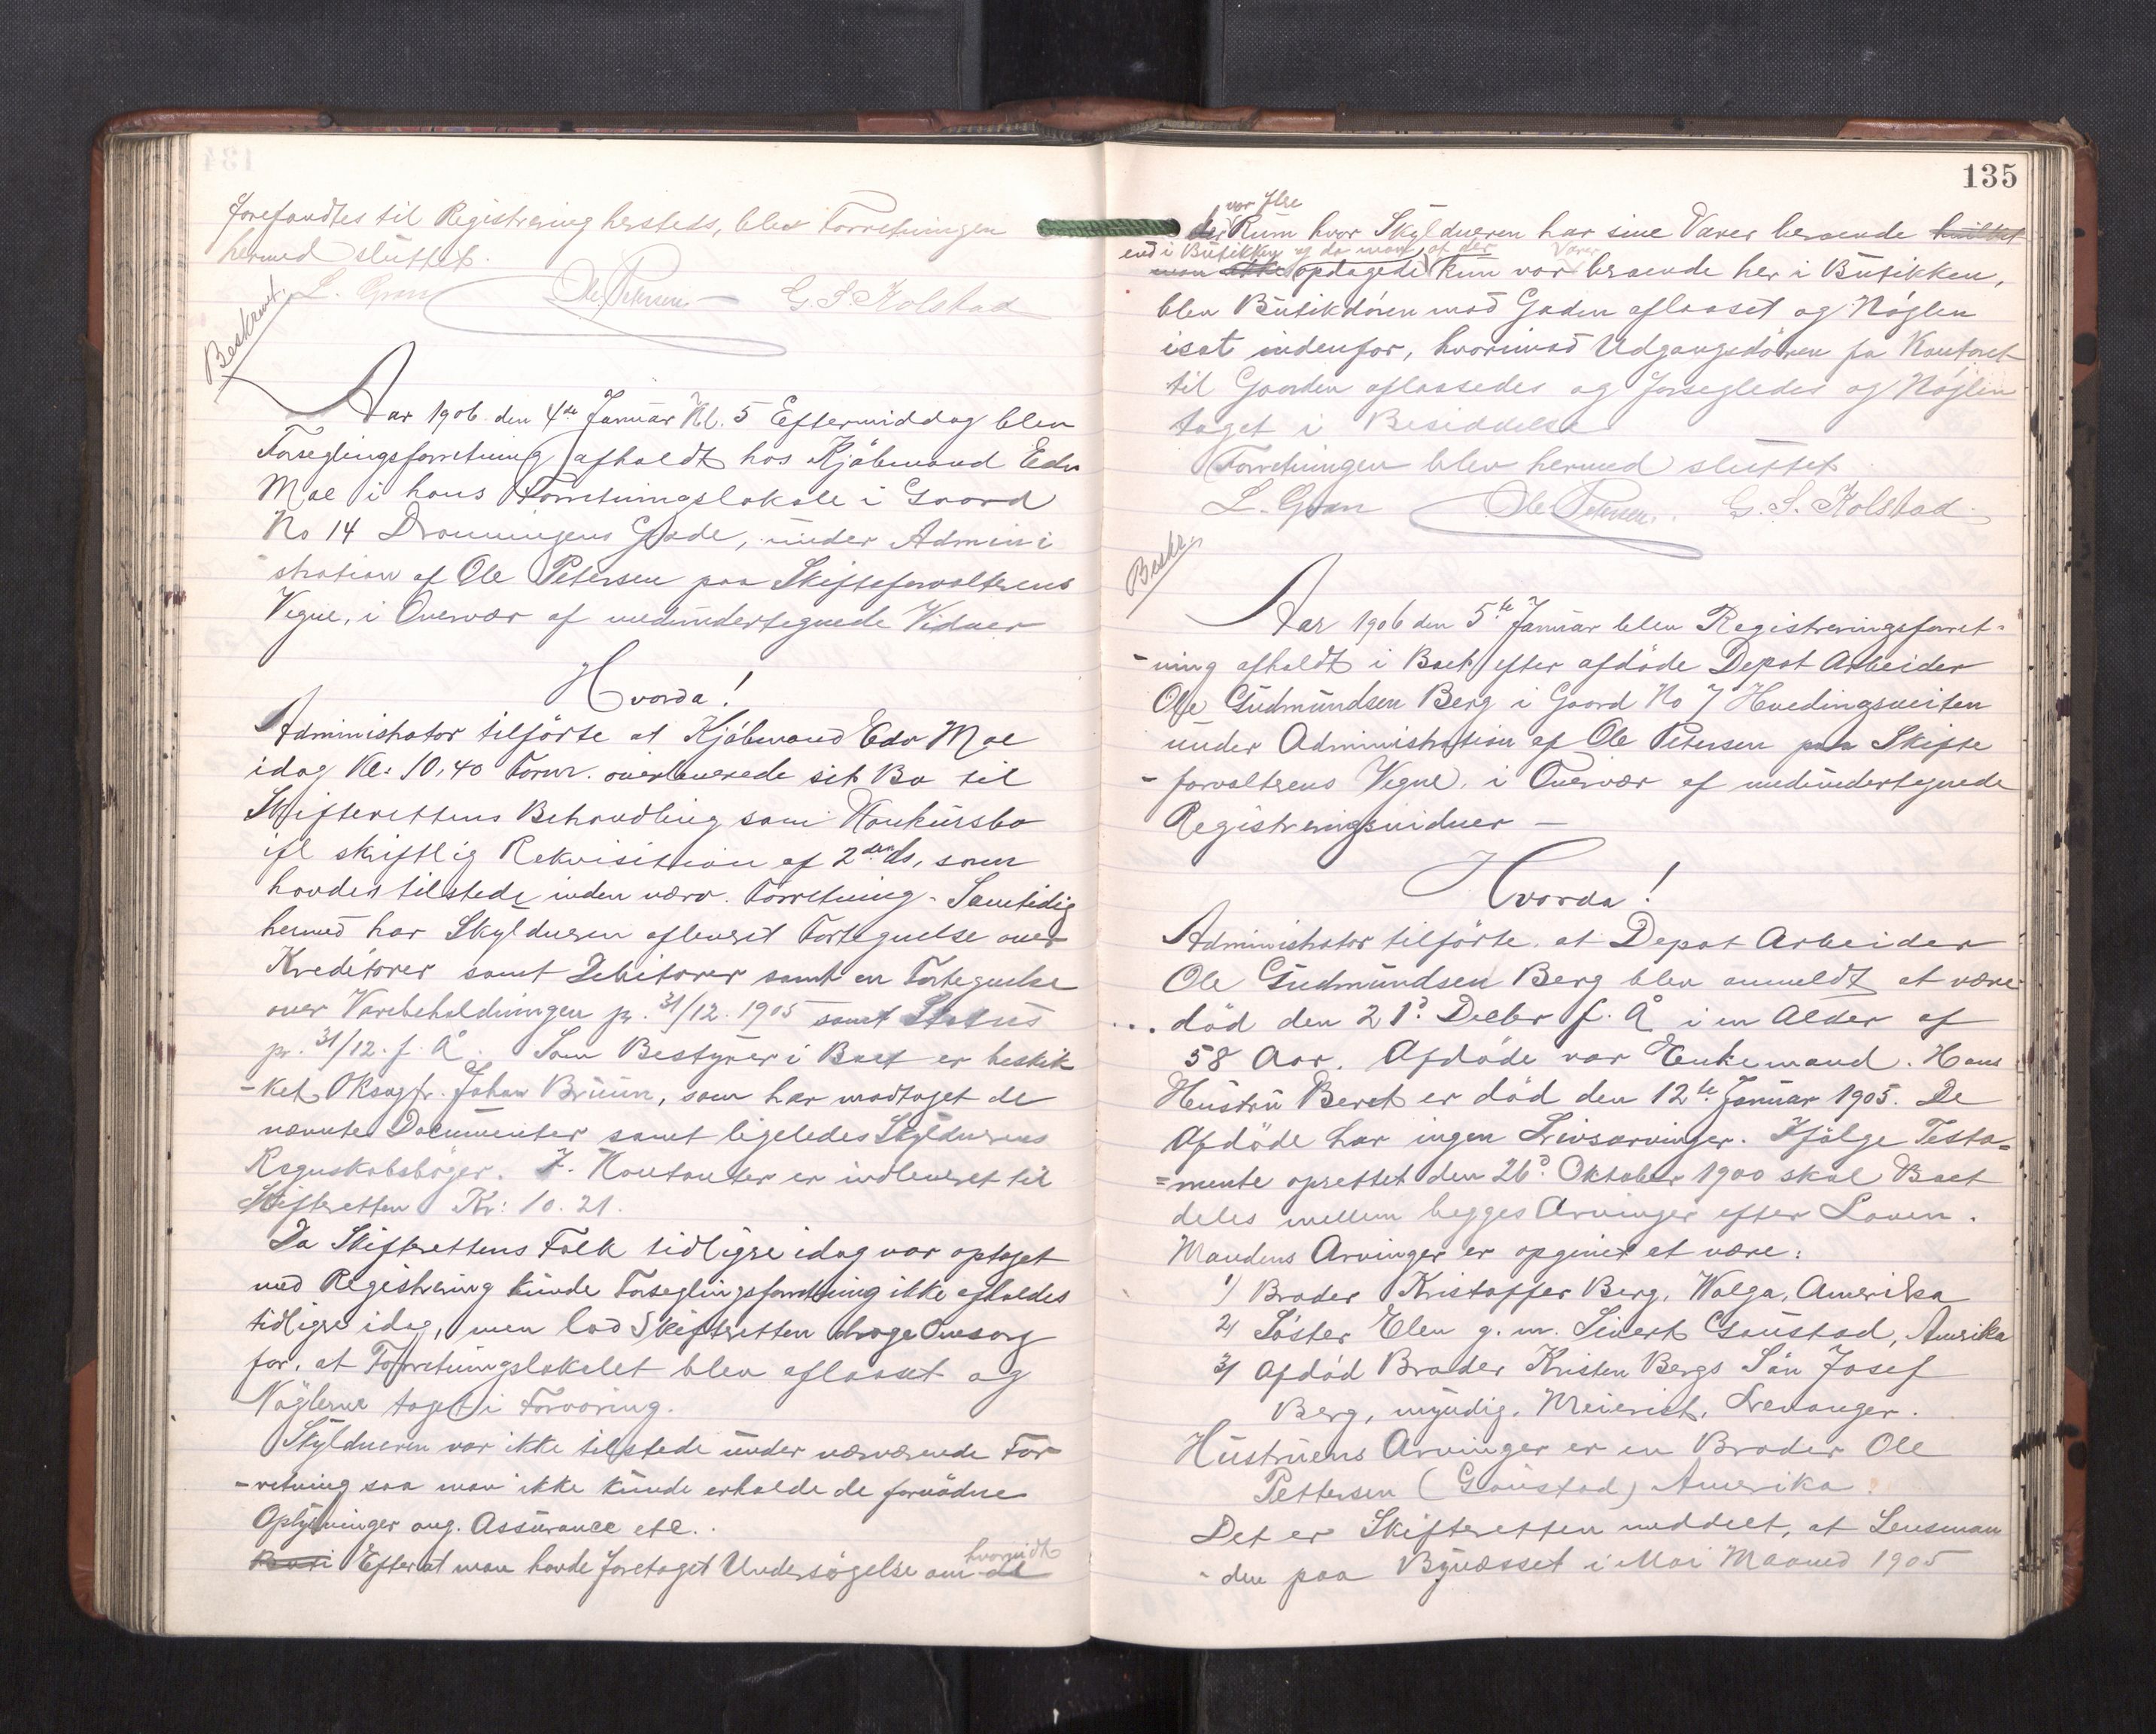 forefandtes til Registrering hersteds, blev Forretningen
hermed sluttet.
L. Gram Ole Petersen G. S. Kolstad
Beskrevet
Aar 1906 den 4de Januar Kl. 5 Eftermiddag blev
Forseglingsforretning afholdt hos Kjøbmand Edv
Moe i hans Forretningslokale i Gaard
No 14 Dronningens Gade, under Admini
stration af Ole Petersen paa Skifteforvalterens
Vegne, i Overvær af medundertegnede Vidner
Hvorda!
Administrator tilførte at Kjøbmand Edv Moe
idag Kl: 10,40 Form. overleverede sit Bo til
Skifterettens Behandling som Konkursbo
ifl skriftlig Rekvisition af 2den ds, som
havdes tilstede inden nærv. Forretning. Samtidig
hermed har Skyldneren afleveret Fortegnelse over
Kreditorer samt Debitorer samt en Fortegnelse
over Varebeholdningen pr. 31/12. 1905 samt Status
pr. 31/12. f. Å. Som Bestyrer i Boet er beskik
-ket OKsagfr. Johan Bruun, som har modtaget de
nævnte Documenter samt ligeledes Skyldnerens
Regnskabsbøger. I Kontanter er indleveret til
Skifteretten Kr: 10.21.
Da Skifterettens Folk tidligere idag var optaget
med Registrering kunde Forseglingsforretning ikke afholdes
tidligre idag, men lod Skifteretten drage Omsorg
for, at Forretningslokalet blev aflaaset og
Nøglerne taget i Forvaring.
Skyldneren var ikke tilstede under nærværende For
-retning saa man ikke kunde erholde de fornødne
Oplysninger ang. Assurance etc.
Efterat man havde foretaget Undersøgelse om hvorvidt de
135
der var flere Rum hvor Skyldneren har sine Varer beroende
end i Butikken og da man opdagede at der kun var Varer beroende her i Butikken,
blev Butikdøren mod Gaden aflaaset og Nøglen
isat indenfor, hvorimod Udgangsdøren fra Kontoret
til Gaarden aflaasedes og forsegledes og Nøglen
taget i Besiddelse
Forretningen blev hermed sluttet
L. Gram Ole Petersen. G. S. Kolstad.
Beskr.
Aar 1906 den 5te Januar blev Registreringsforret-
-ning afholdt i Boet efter afdøde Depot Arbeider
Ole Gudmundsen Berg i Gaard No 7 Hvedingsveiten
under Administration af Ole Petersen paa Skifte
-forvalterens Vegne. i Overvær af medundertegnede
Registreringsvidner —
Hvorda!
Administrator tilførte at Depot Arbeider
Ole Gudmundsen Berg blev anmeldt at være
død den 21d Decbr f. Å i en Alder af
58 Aar. Afdøde var Enkemand. Hans
Hustru Beret er død den 12te Januar 1905. De
Afdøde har ingen Livsarvinger. Ifølge Testa=
=mente oprettet den 26d Oktober 1900 skal Boet
deles mellem begges Arvinger efter Loven.
Mandens Arvinger er opgivet at være:
1) Broder Kristoffer Berg, Walga, Amerika
2) Søster Elen g. m. Sivert Gaustad, Amerika
3) Afdød Broder Kristen Bergs Søn Josef
Berg, myndig, Meierist, Levanger.
Hustruens Arvinger er en Broder Ole
Pettersen (Gaustad) Amerika.
Det er Skifteretten meddelt, at Lensman
-den paa Bynæsset i Mai Maaned 1905